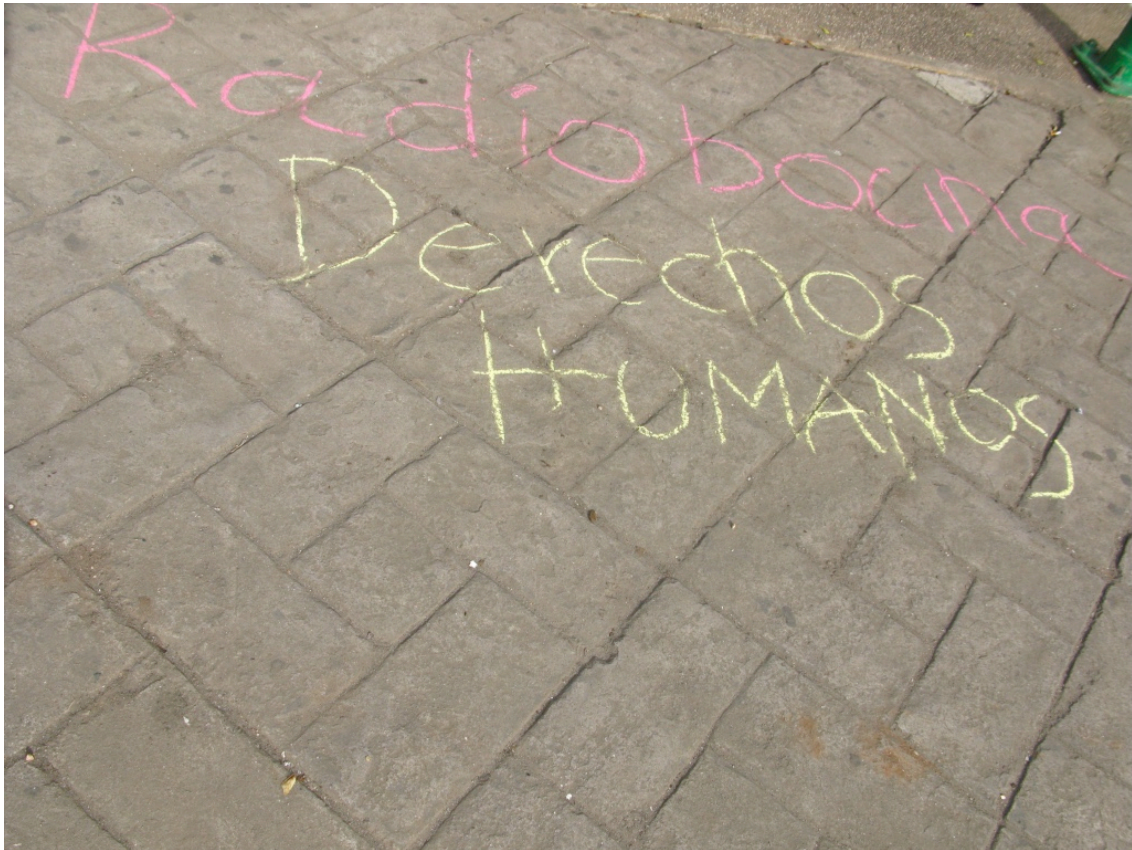 Radio bocina
Derechos
HUMANOS